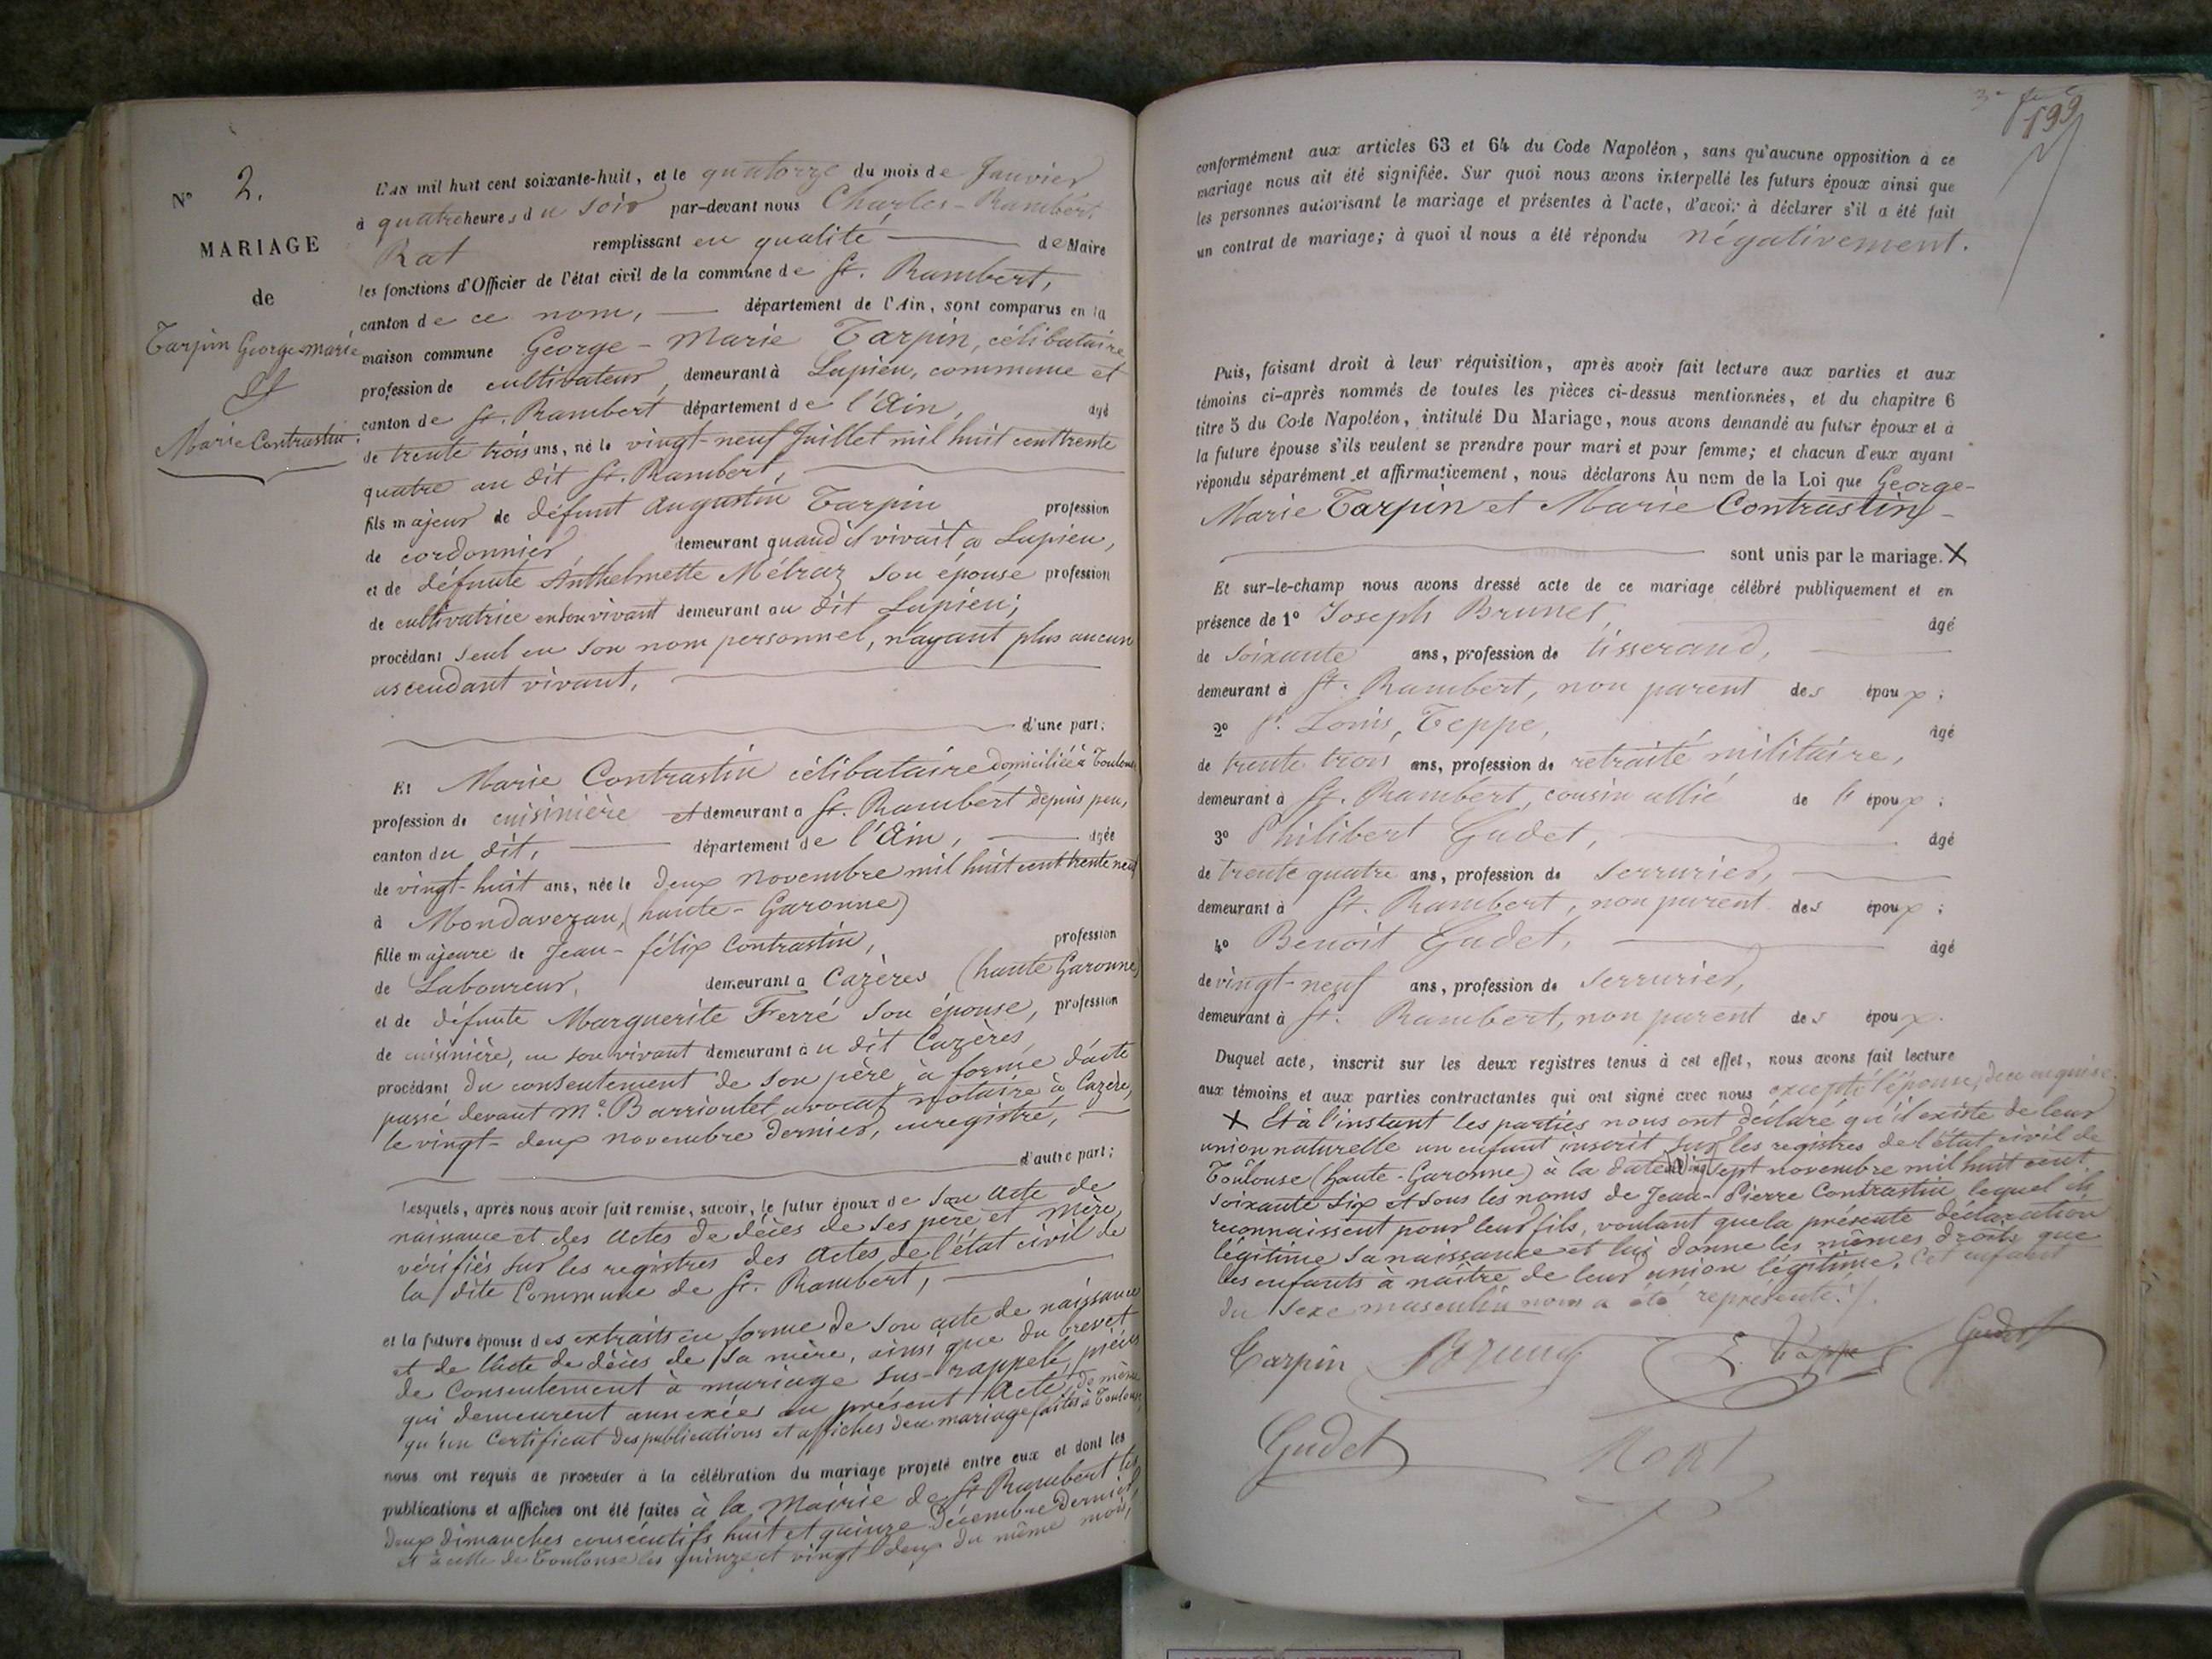 N° 2.
MARIAGE
de
Tarpin George-Marie
Et
Marie Contrastin.
L'AN mil huit cent soixante-huit, et le quatorze du mois de Janvier
à quatre heures du soir par-devant nous Charles-Rambert
Rat remplissant en qualité de Maire
les fonctions d'Officier de l'état civil de la commune de St. Rambert,
canton de ce nom, département de l'Ain, sont comparus en la
maison commune George-Marie Tarpin, célibataire,
profession de cultivateur, demeurant à Lupieu, commune et
canton de St. Rambert département de l'Ain, âgé
de trente trois ans, né le vingt-neuf Juillet mil huit cent trente
quatre au dit St. Rambert,
fils majeur de défunt Augustin Tarpin profession
de cordonnier, demeurant quand il vivait à Lupieu,
et de défunte Anthelmette Mélraz son épouse profession
de cultivatrice en son vivant demeurant au dit Lupieu;
procédant seul en son nom personnel, n'ayant plus aucun
ascendant vivant,
d'une part;
Et Marie Contrastin célibataire domiciliée à Toulouse
profession de cuisinière et demeurant à St. Rambert depuis peu,
canton du dit, département de l'Ain, âgée
de vingt-huit ans, née le deux novembre mil huit cent trente neuf
à Mondavezan, (haute-Garonne)
fille majeure de Jean-félix Contrastin, profession
de Laboureur, demeurant à Cazères (haute Garonne)
et de défunte Marguerite Ferré son épouse, profession
de cuisinière, en son vivant demeurant au dit Cazères,
procédant du consentement de son père, à forme d'acte
passé devant Me. Barrioulet avocat notaire à Cazère,
le vingt-deux novembre dernier, enregistré,
d'autre part;
Lesquels, après nous avoir fait remise, savoir, le futur époux de son acte de
naissance et des actes de décès de ses père et mère,
vérifiés sur les registres des actes de l'état civil de
la dite Commune de St. Rambert,
et la future épouse des extraits en forme de son acte de naissance
et de l'acte de décès de sa mère, ainsi que du brevet
de Consentement à mariage sus-rappelé, pièces
qui demeurent annexées au présent Acte, de même
qu'un Certificat des publications et affiches du mariage faites à Toulouse,
nous ont requis de procéder à la célébration du mariage projeté entre eux et dont les
publications et affiches ont été faites à la Mairie de St Rambert les
deux dimanches consécutifs huit et quinze Décembre dernier,
et à celle de Toulouse les quinze et vingt deux du même mois,
199
conformément aux articles 63 et 64 du Code Napoléon, sans qu'aucune opposition à ce
mariage nous ait été signifiée. Sur quoi nous avons interpellé les futurs époux ainsi que
les personnes autorisant le mariage et présentes à l'acte, d'avoir à déclarer s'il a été fait
un contrat de mariage; à quoi il nous a été répondu négativement.
Puis, faisant droit à leur réquisition, après avoir fait lecture aux parties et aux
témoins ci-après nommés de toutes les pièces ci-dessus mentionnées, et du chapitre 6
titre 5 du Code Napoléon, intitulé Du Mariage, nous avons demandé au futur époux et à
la future épouse s'ils veulent se prendre pour mari et pour femme; et chacun d'eux ayant
répondu séparément et affirmativement, nous déclarons Au nom de la Loi que George-
Marie Tarpin et Marie Contrastin
sont unis par le mariage. X
Et sur-le-champ nous avons dressé acte de ce mariage célébré publiquement et en
présence de 1° Joseph Brunet, âgé
de soixante ans, profession de tisserand,
demeurant à St. Rambert, non parent des époux;
2° Louis, Teppe, âgé
de trente trois ans, profession de retraité militaire,
demeurant à St. Rambert, cousin allié de l' époux;
3° Philibert Gudet, âgé
de trente quatre ans, profession de Serrurier,
demeurant à St. Rambert, non parent des époux;
4° Benoit Gudet, âgé
de vingt-neuf ans, profession de Serrurier,
demeurant à St. Rambert, non parent des époux.
Duquel acte, inscrit sur les deux registres tenus à cet effet, nous avons fait lecture
aux témoins et aux parties contractantes qui ont signé avec nous excepté l'épouse, de ce enquise.
X Et à l'instant les parties nous ont déclaré qu'il existe de leur
union naturelle un enfant inscrit sur les registres de l'état civil de
Toulouse (haute-Garonne) à la date du vingt sept novembre mil huit cent
soixante six et sous les noms de Jean-Pierre Contrastin lequel ils
reconnaissent pour leur fils, voulant que la présente déclaration
légitime sa naissance et lui donne les mêmes droits que
les enfants à naître de leur union légitime. Cet enfant
du sexe masculin nous a été représenté.
Tarpin Brunet L. Teppe Gudet
Gudet Rat